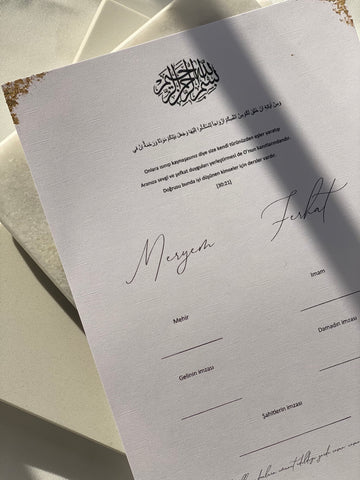 بسم الله الرحمن الرحيم
ومن آياته ان خلق لكم من انفسكم ازواجا لتسكنوا اليها وجعل بينكم مودة ورحمة ان في
Onlara ısınıp kaynaşasınız diye size kendi türünüzden eşler yaratıp
Aranıza sevgi ve şefkat duyguları yerleştirmesi de O'nun kanıtlarındandır.
Doğrusu bunda iyi düşünen kimseler için dersler vardır.
(30:21)
Meryem Ferhat
Mehir İmam
Gelinin imzası Damadın imzası
Şahitlerin imzası